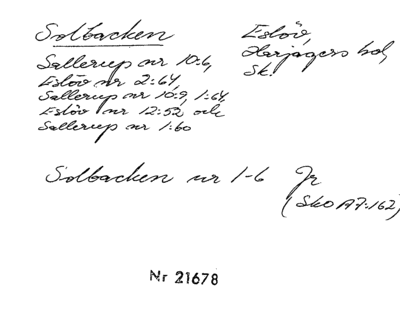 Solbacken
Eslöv,
Harjagers hd,
Sk.
Sallerup nr 10:6,
Eslöv nr 2:64,
Sallerup nr 10:9, 1:64,
Eslöv nr 12:52 och
Sallerup nr 1:60
Solbacken nr 1-6 Jr
(Sko A7:162)
Nr 21678